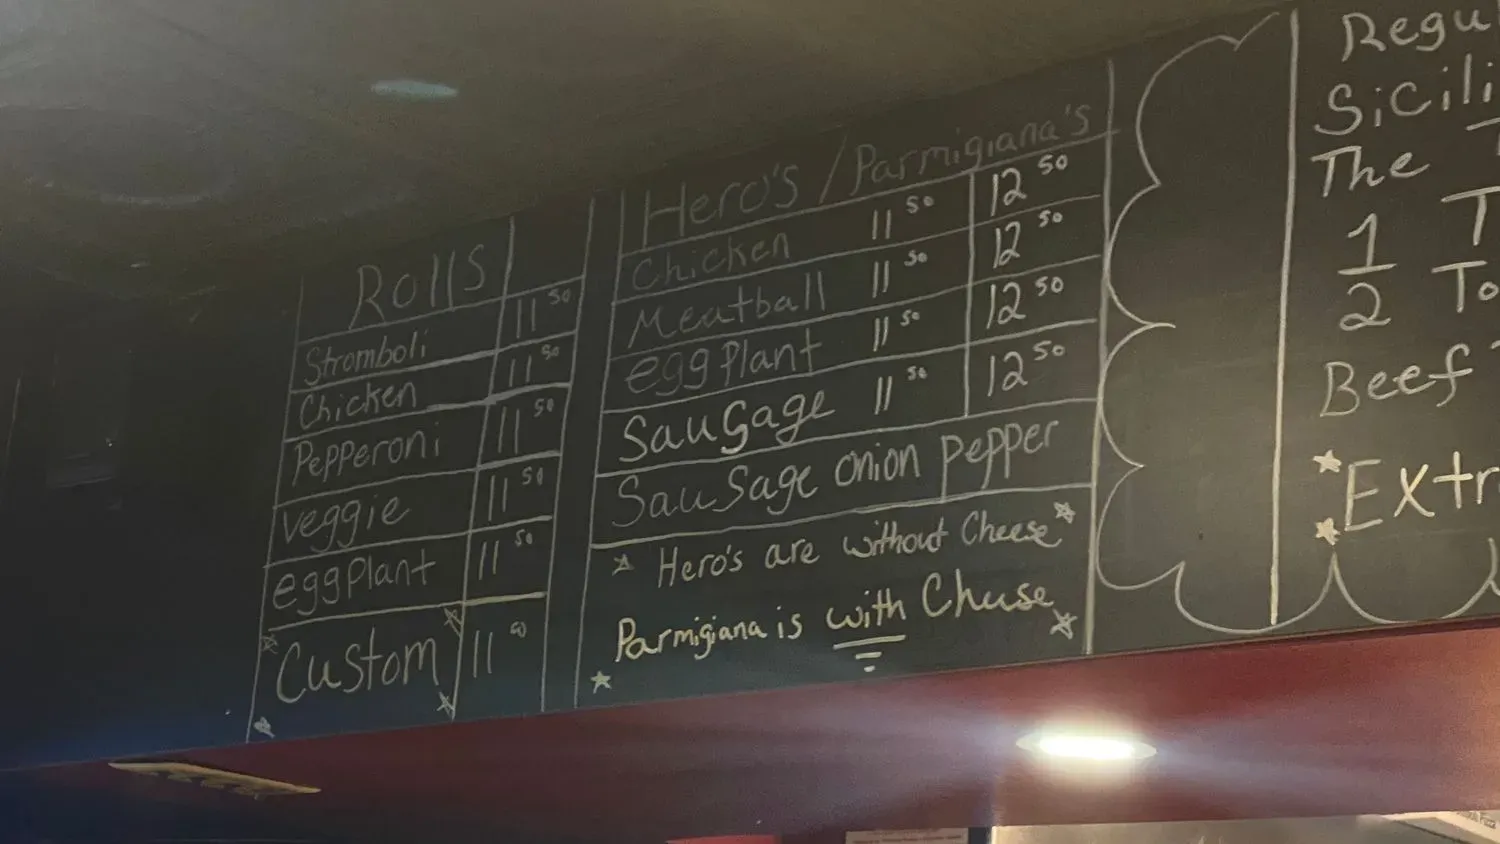 Rolls
Stromboli 11 50
Chicken 11 50
Pepperoni 11 50
Veggie 11 50
eggPlant 11 50
Custom 11 50
Hero's / Parmigiana's
Chicken 11 50 12 50
Meatball 11 50 12 50
eggPlant 11 50 12 50
Sausage 11 50 12 50
Sausage onion pepper
Hero's are without Cheese
Parmigiana is with Chuse
Regu
Sicili
The T
1/2 To
Beef
Extr